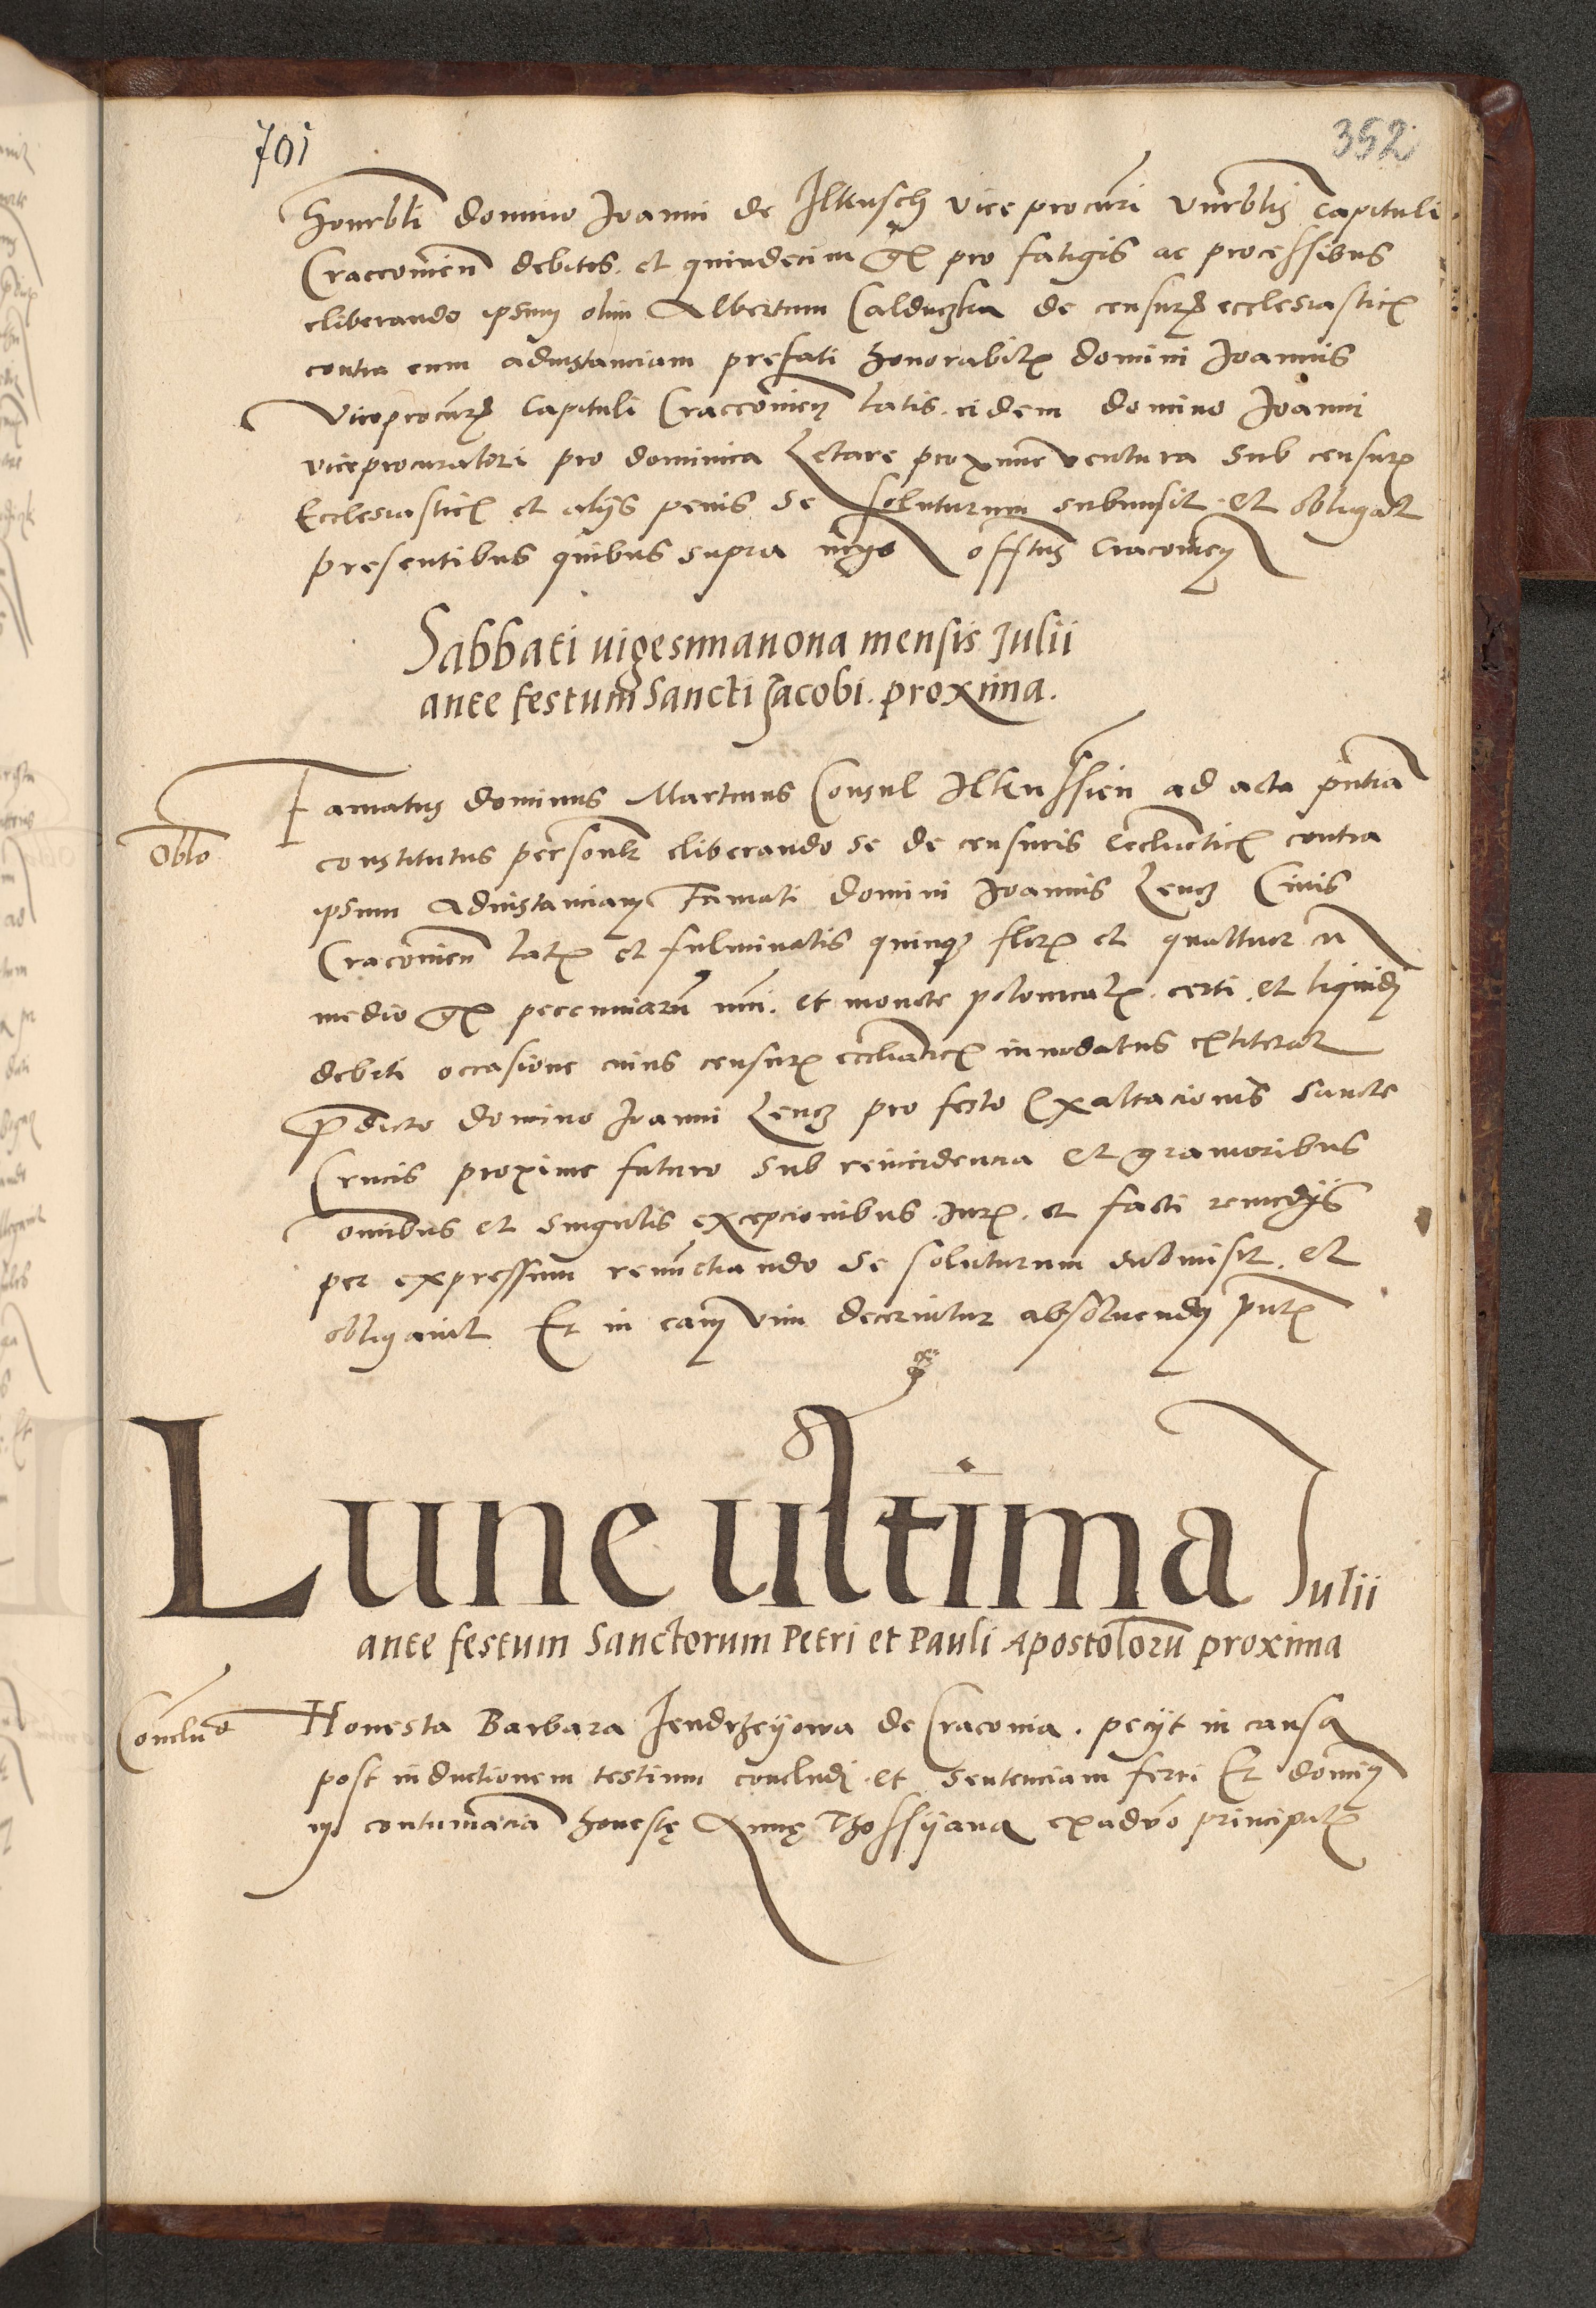 701
352
honrbli domino Joanni de Ilkusch vice procuri venrblis Capituli
Craccovien debitis. et quindecim gr pro fatigis ac processibus
eliberando ipsum olim Albertum Calduczka de censuris ecclesiasticis
contra eum adinstanciam prefati honorabilis domini Joannis
viceprocuris Capituli Craccovien latis. eidem domino Joanni
viceprocuratori pro dominica Letare proxime ventura sub censuris
Ecclesiasticis et alijs penis se soluturum submisit. et obligat
presentibus quibus supra offtus Cracovien
Sabbati uigesimanona mensis Julii
ante festum Sancti Jacobi. proxima.
Oblo
Famatus dominus Martinus Consul Ilkussien ad acta pntia
constitutus personlr eliberando se de censuris eccliasticis contra
ipsum Adinstanciam Famati domini Joannis Lencz Civis
Cracovien latis et fulminatis quinque flor et quattuor cu
medio gr peccuniaru nui. et monete polonicalis. certi. et liquidi
debiti occasione cuius censuris eccliasticis innodatus extiterat
pdicto domino Joanni Lencz pro festo Exaltacionis Sancte
Crucis proxime futuro sub reincidencia et gravioribus
omnibus et singulis excepcionibus Juris. et facti remedijs
per expressum renunctiando se soluturum submisit. et
obligavit Et in eam vim decernitur absoluendus pntibus
Lune ultima Julii
ante festum Sanctorum Petri et Pauli Apostoloru proxima
Conclusio
Honesta Barbara Jendrzeyowa de Cracovia. pecijt in causa
post inductionem testium concludi. et sentenciam ferri Et dominus
in contumacia honestę Annę Thossijana ex aduo principalis